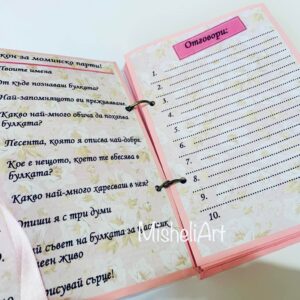 кон за моминско парти!
Твоите имена
От къде познаваш булката?
Най-запомнящото ви преживяване
Какво най-много обича да похапва
булката?
Песента, която я описва най-добре
Кое е нещото, което те вбесява в
булката?
Какво най-много харесваш в нея?
Опиши я с три думи
съвет на булката за щастлив
живо
рисувай сърце!
Отговори:
1.
2.
3.
4.
5.
6.
7.
8.
9.
10.
MisheliArt